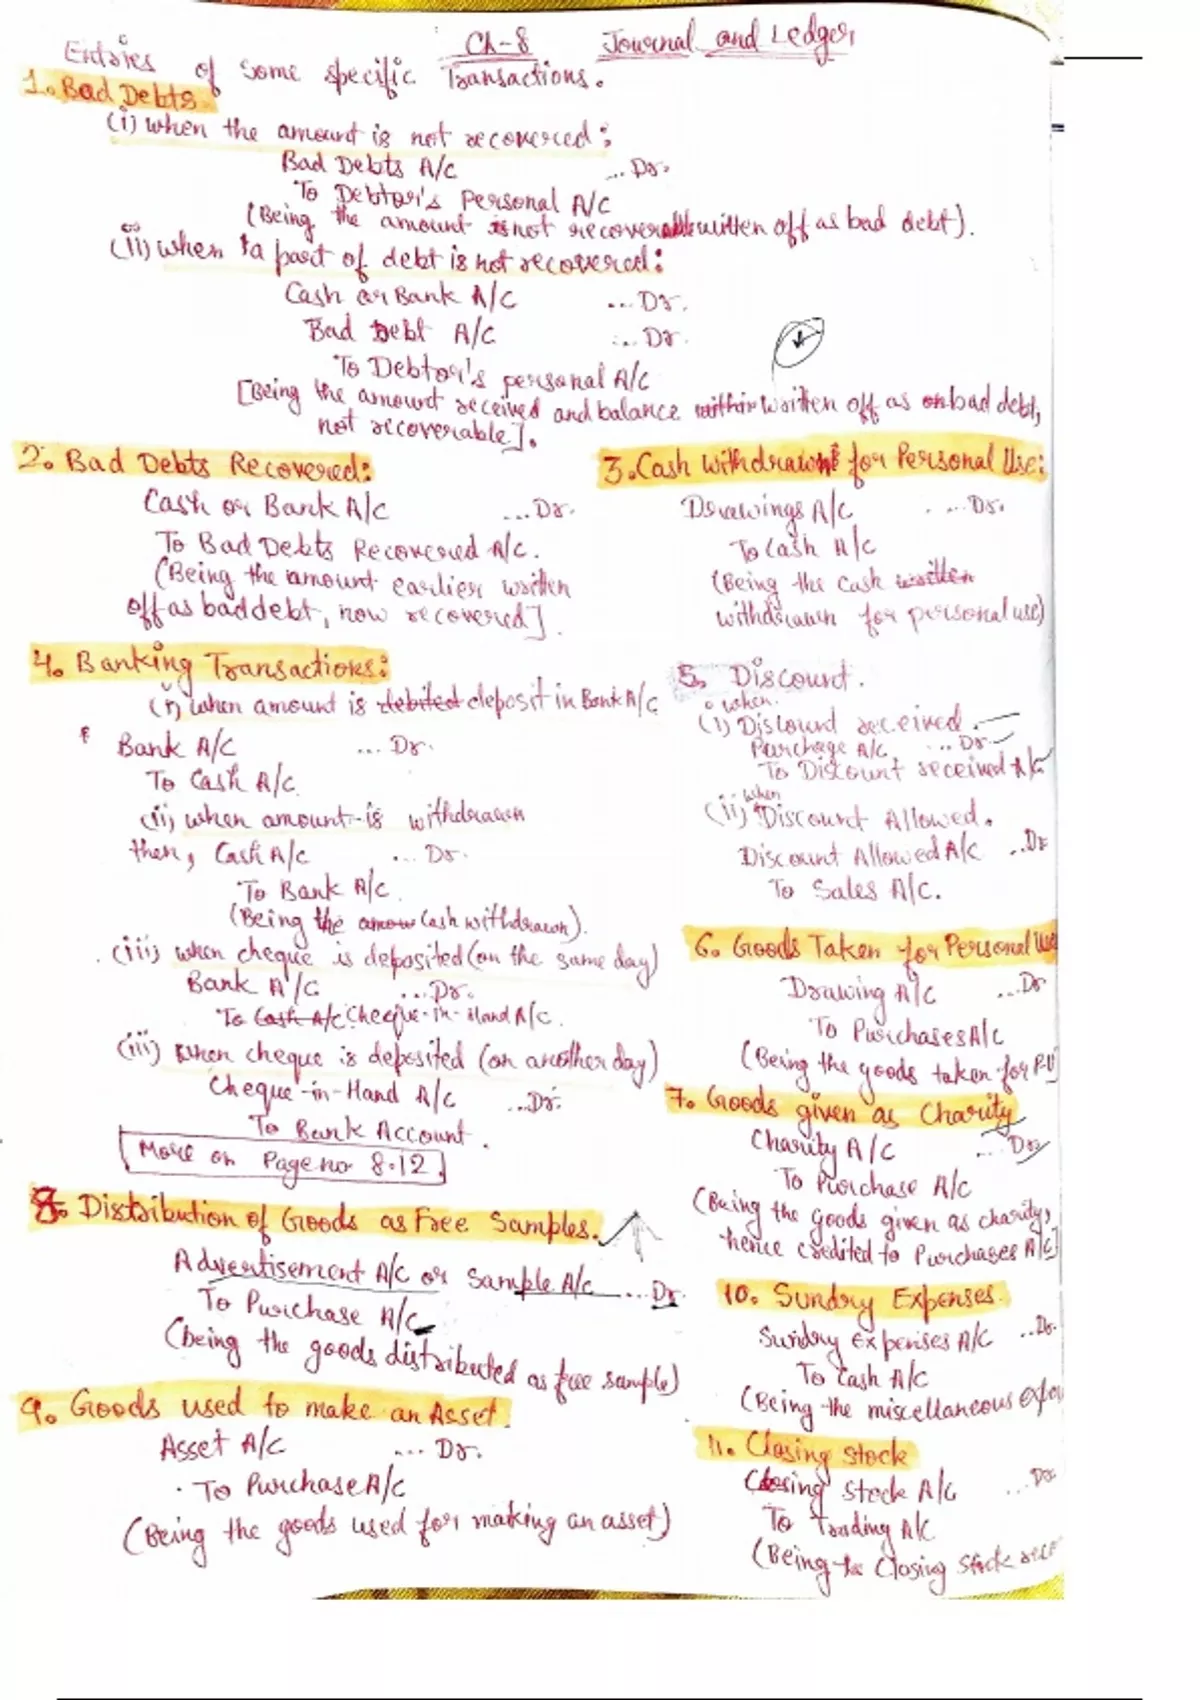 Ch-8 Journal and Ledger
Entries of Some specific Transactions.
1. Bad Debts
(i) when the amount is not recovered:
Bad Debts A/c ... Dr.
To Debtor's Personal A/c
(Being the amount is not recoverable written off as bad debt).
(ii) when a part of debt is not recovered:
Cash or Bank A/c ... Dr.
Bad Debt A/c ... Dr.
To Debtor's personal A/c
[Being the amount received and balance within written off as on bad debt,
not recoverable].
2. Bad Debts Recovered:
Cash or Bank A/c ... Dr.
To Bad Debts Recovered A/c.
(Being the amount earlier written
off as bad debt, now recovered].
3. Cash withdrawn for Personal Use:
Drawings A/c ... Dr.
To Cash A/c
(Being the cash written
withdrawn for personal use)
4. Banking Transactions:
(i) when amount is debited deposit in Bank A/c
Bank A/c ... Dr.
To Cash A/c.
(ii) when amount is withdrawn
then, Cash A/c ... Dr.
To Bank A/c.
(Being the amou Cash withdrawn).
(iii) when cheque is deposited (on the same day)
Bank A/c ... Dr.
To Cash A/c Cheque-in-Hand A/c.
(iii) when cheque is deposited (on another day)
Cheque-in-Hand A/c ... Dr.
To Bank Account.
More on Page no 8.12
5. Discount.
when
(i) Discount received.
Purchage A/c ... Dr.
To Discount received A/c
when
(ii) Discount Allowed.
Discount Allowed A/c ... Dr
To Sales A/c.
6. Goods Taken for Personal Use
Drawing A/c ... Dr
To Purchases A/c
(Being the goods taken for P.U)
7. Goods given as Charity
Charity A/c ... Dr.
To Purchase A/c
(Being the goods given as charity,
hence credited to Purchases A/c]
8. Distribution of Goods as Free Samples.
Advertisement A/c or Sample A/c ... Dr.
To Purchase A/c
(being the goods distributed as free sample)
9. Goods used to make an Asset.
Asset A/c ... Dr.
To Purchase A/c
(Being the goods used for making an asset)
10. Sundry Expenses.
Sundry Expenses A/c ... Dr.
To Cash A/c
(Being the miscellaneous
11. Closing Stock
Closing Stock A/c ... Dr.
To Trading A/c
(Being the Closing Stock